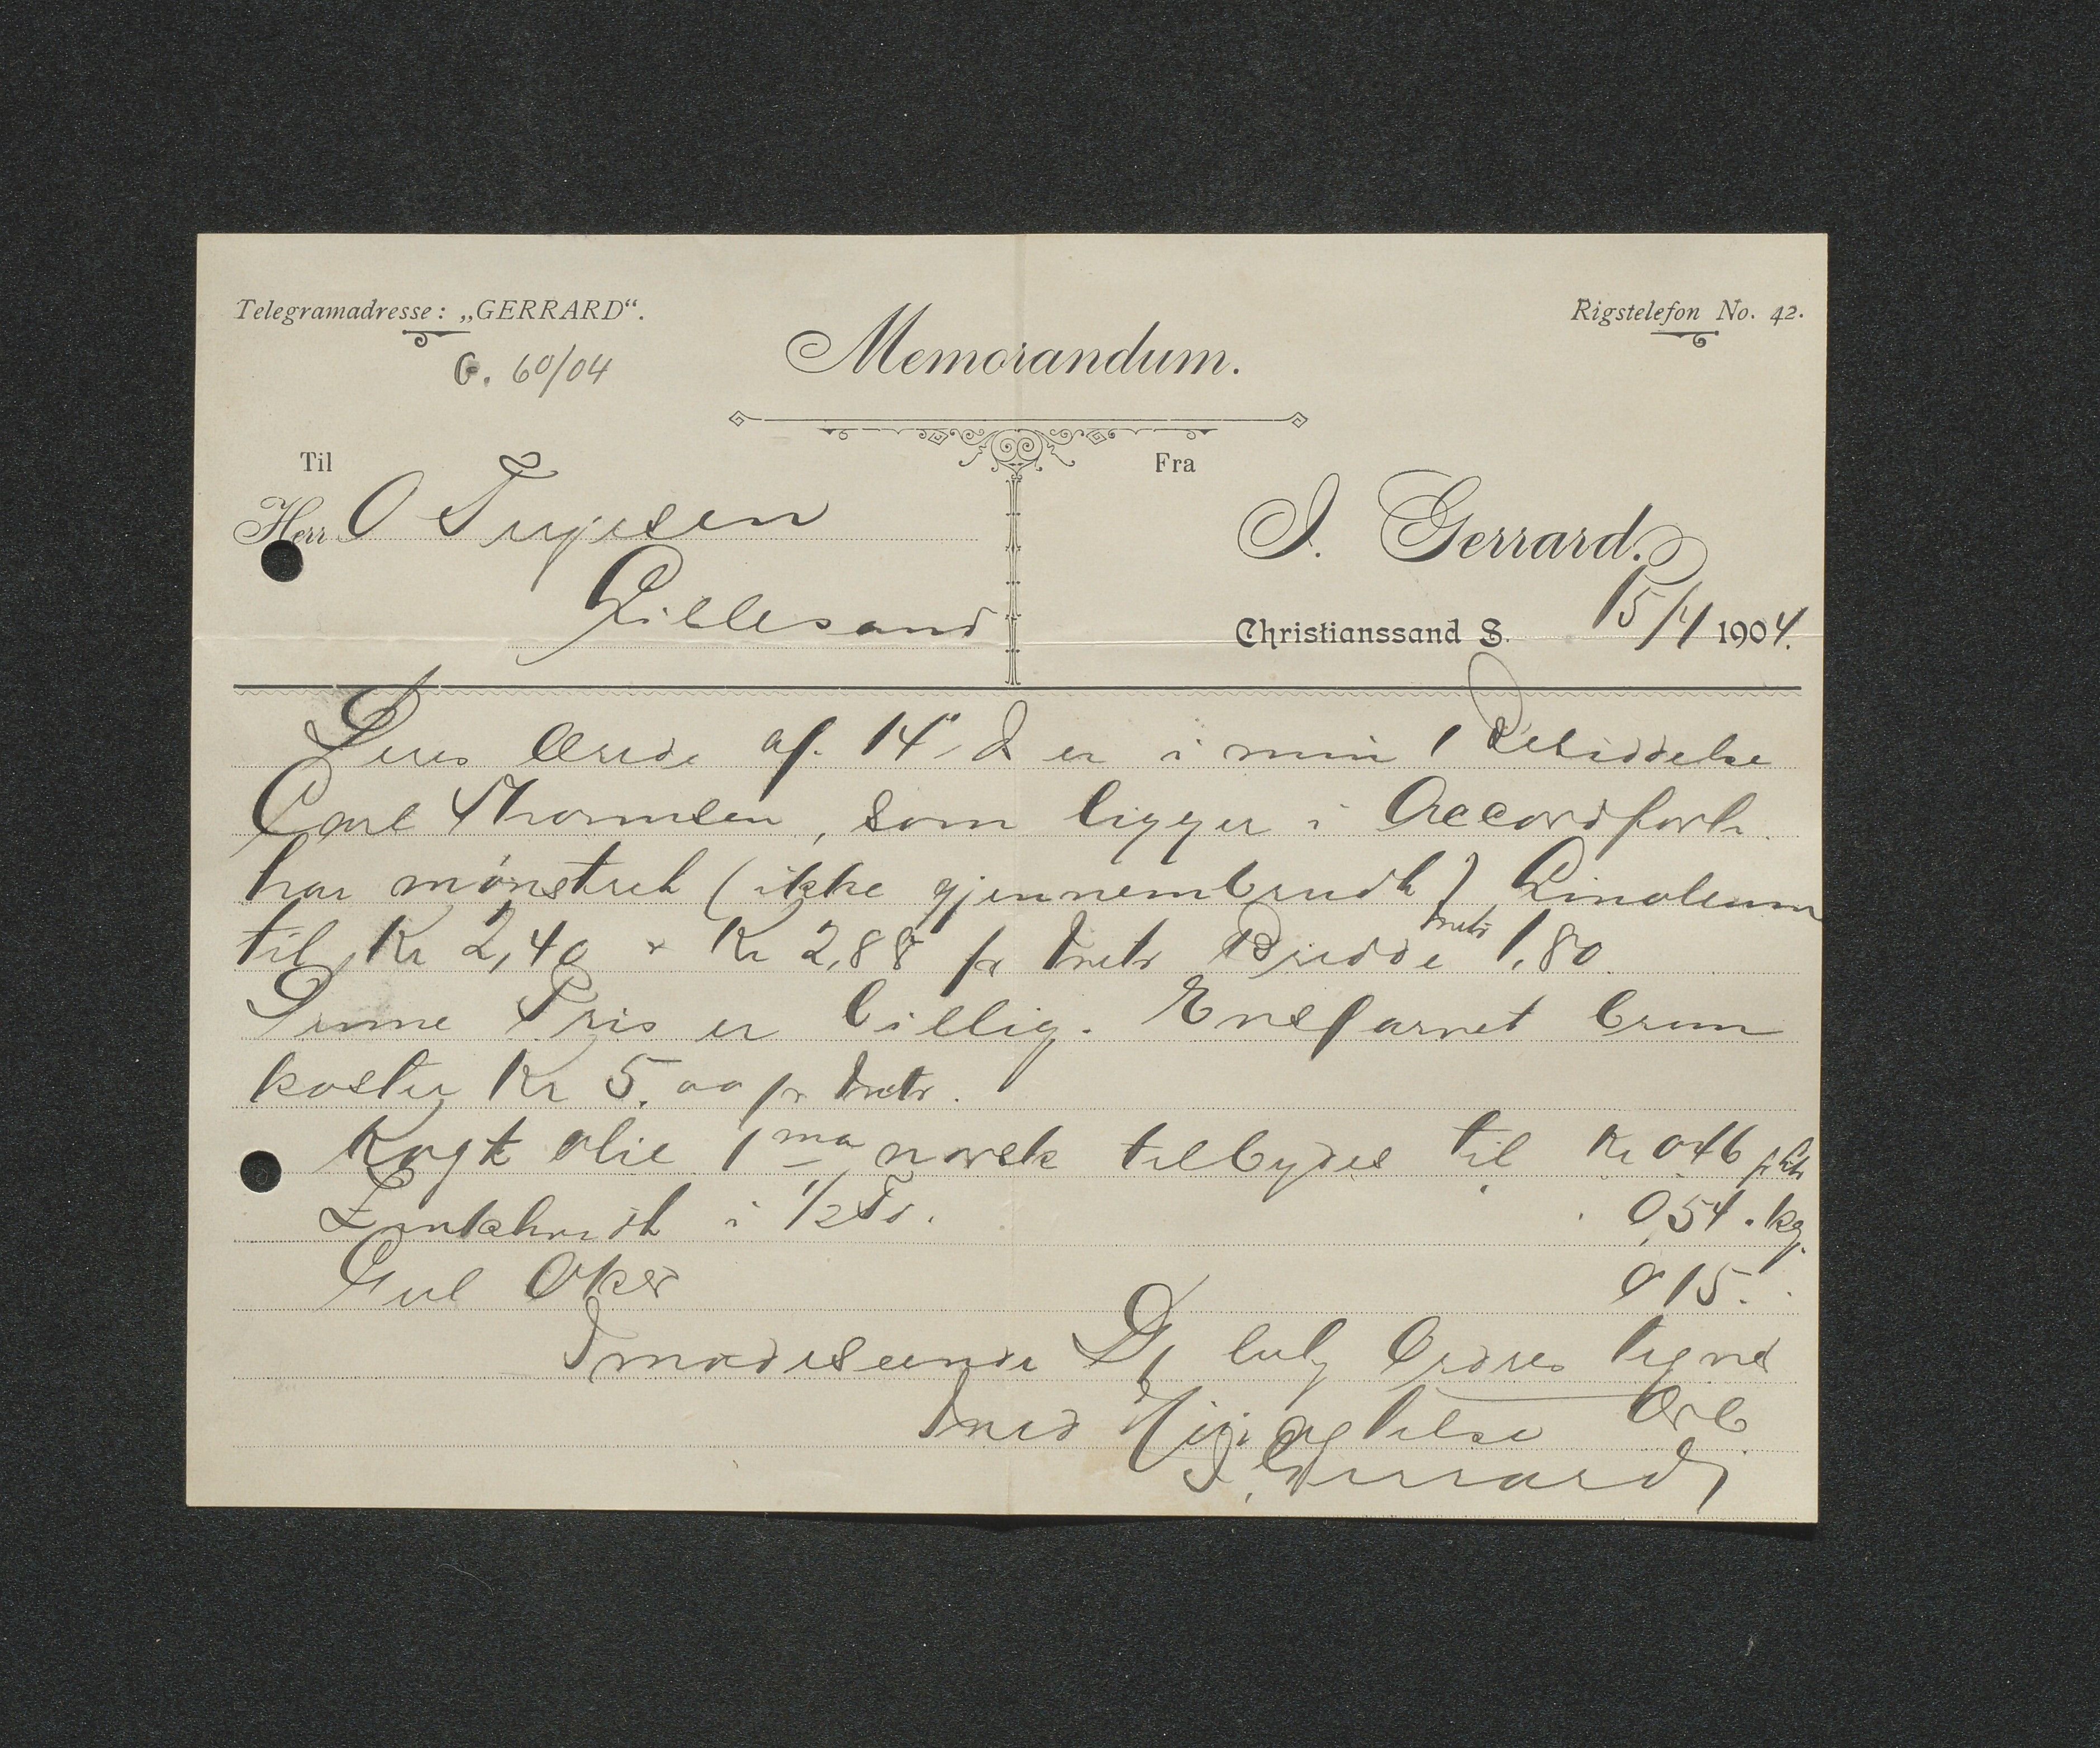 Telegramadresse: „GERRARD“.
Rigstelefon No. 42.
G. 60/04
Memorandum.
Til
Fra
Herr O Terjesen
Lillesand
I. Gerrard.
Christianssand S. 15/4 1904.
Deres Ærede af 14 d er i min Besiddelse
Carl Thommesen, som ligger i Accordforh.
har mønstret (ikke gjennembrudt) Linoleum
til Kr 2,40 & Kr 2,88 pr metr Bredde metr 1,80.
Denne Pris er billig. Ensfarvet brun
koster Kr 5.00 pr metr.
Kogt olie 1ma norsk tilbydes til Kr 0.46 pr litr
Zinkhvidt i 1/2 . 0,54 . kg.
Gul Oker 0 15 . .
Imødeseende D/ Ordres tegnes
med Høiagtelse Erb.
I. Gerrard